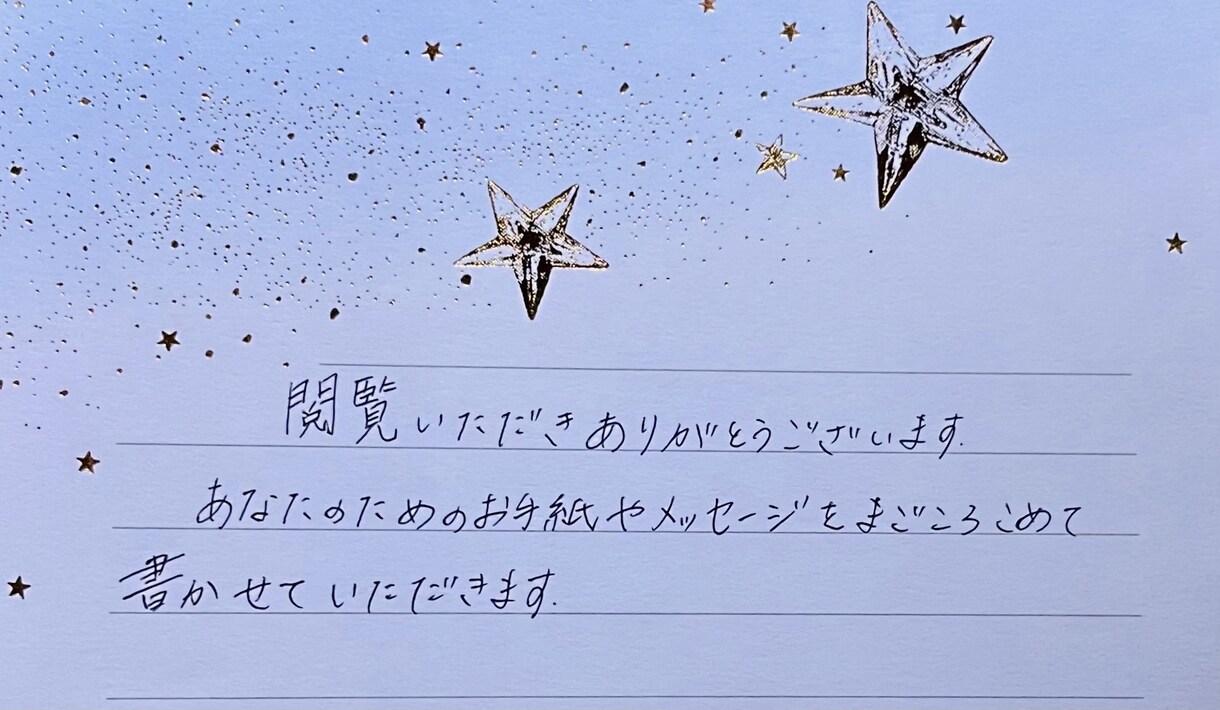 閲覧いただきありがとうございます.
あなたのためのお手紙やメッセージをまごころこめて
書かせていただきます.